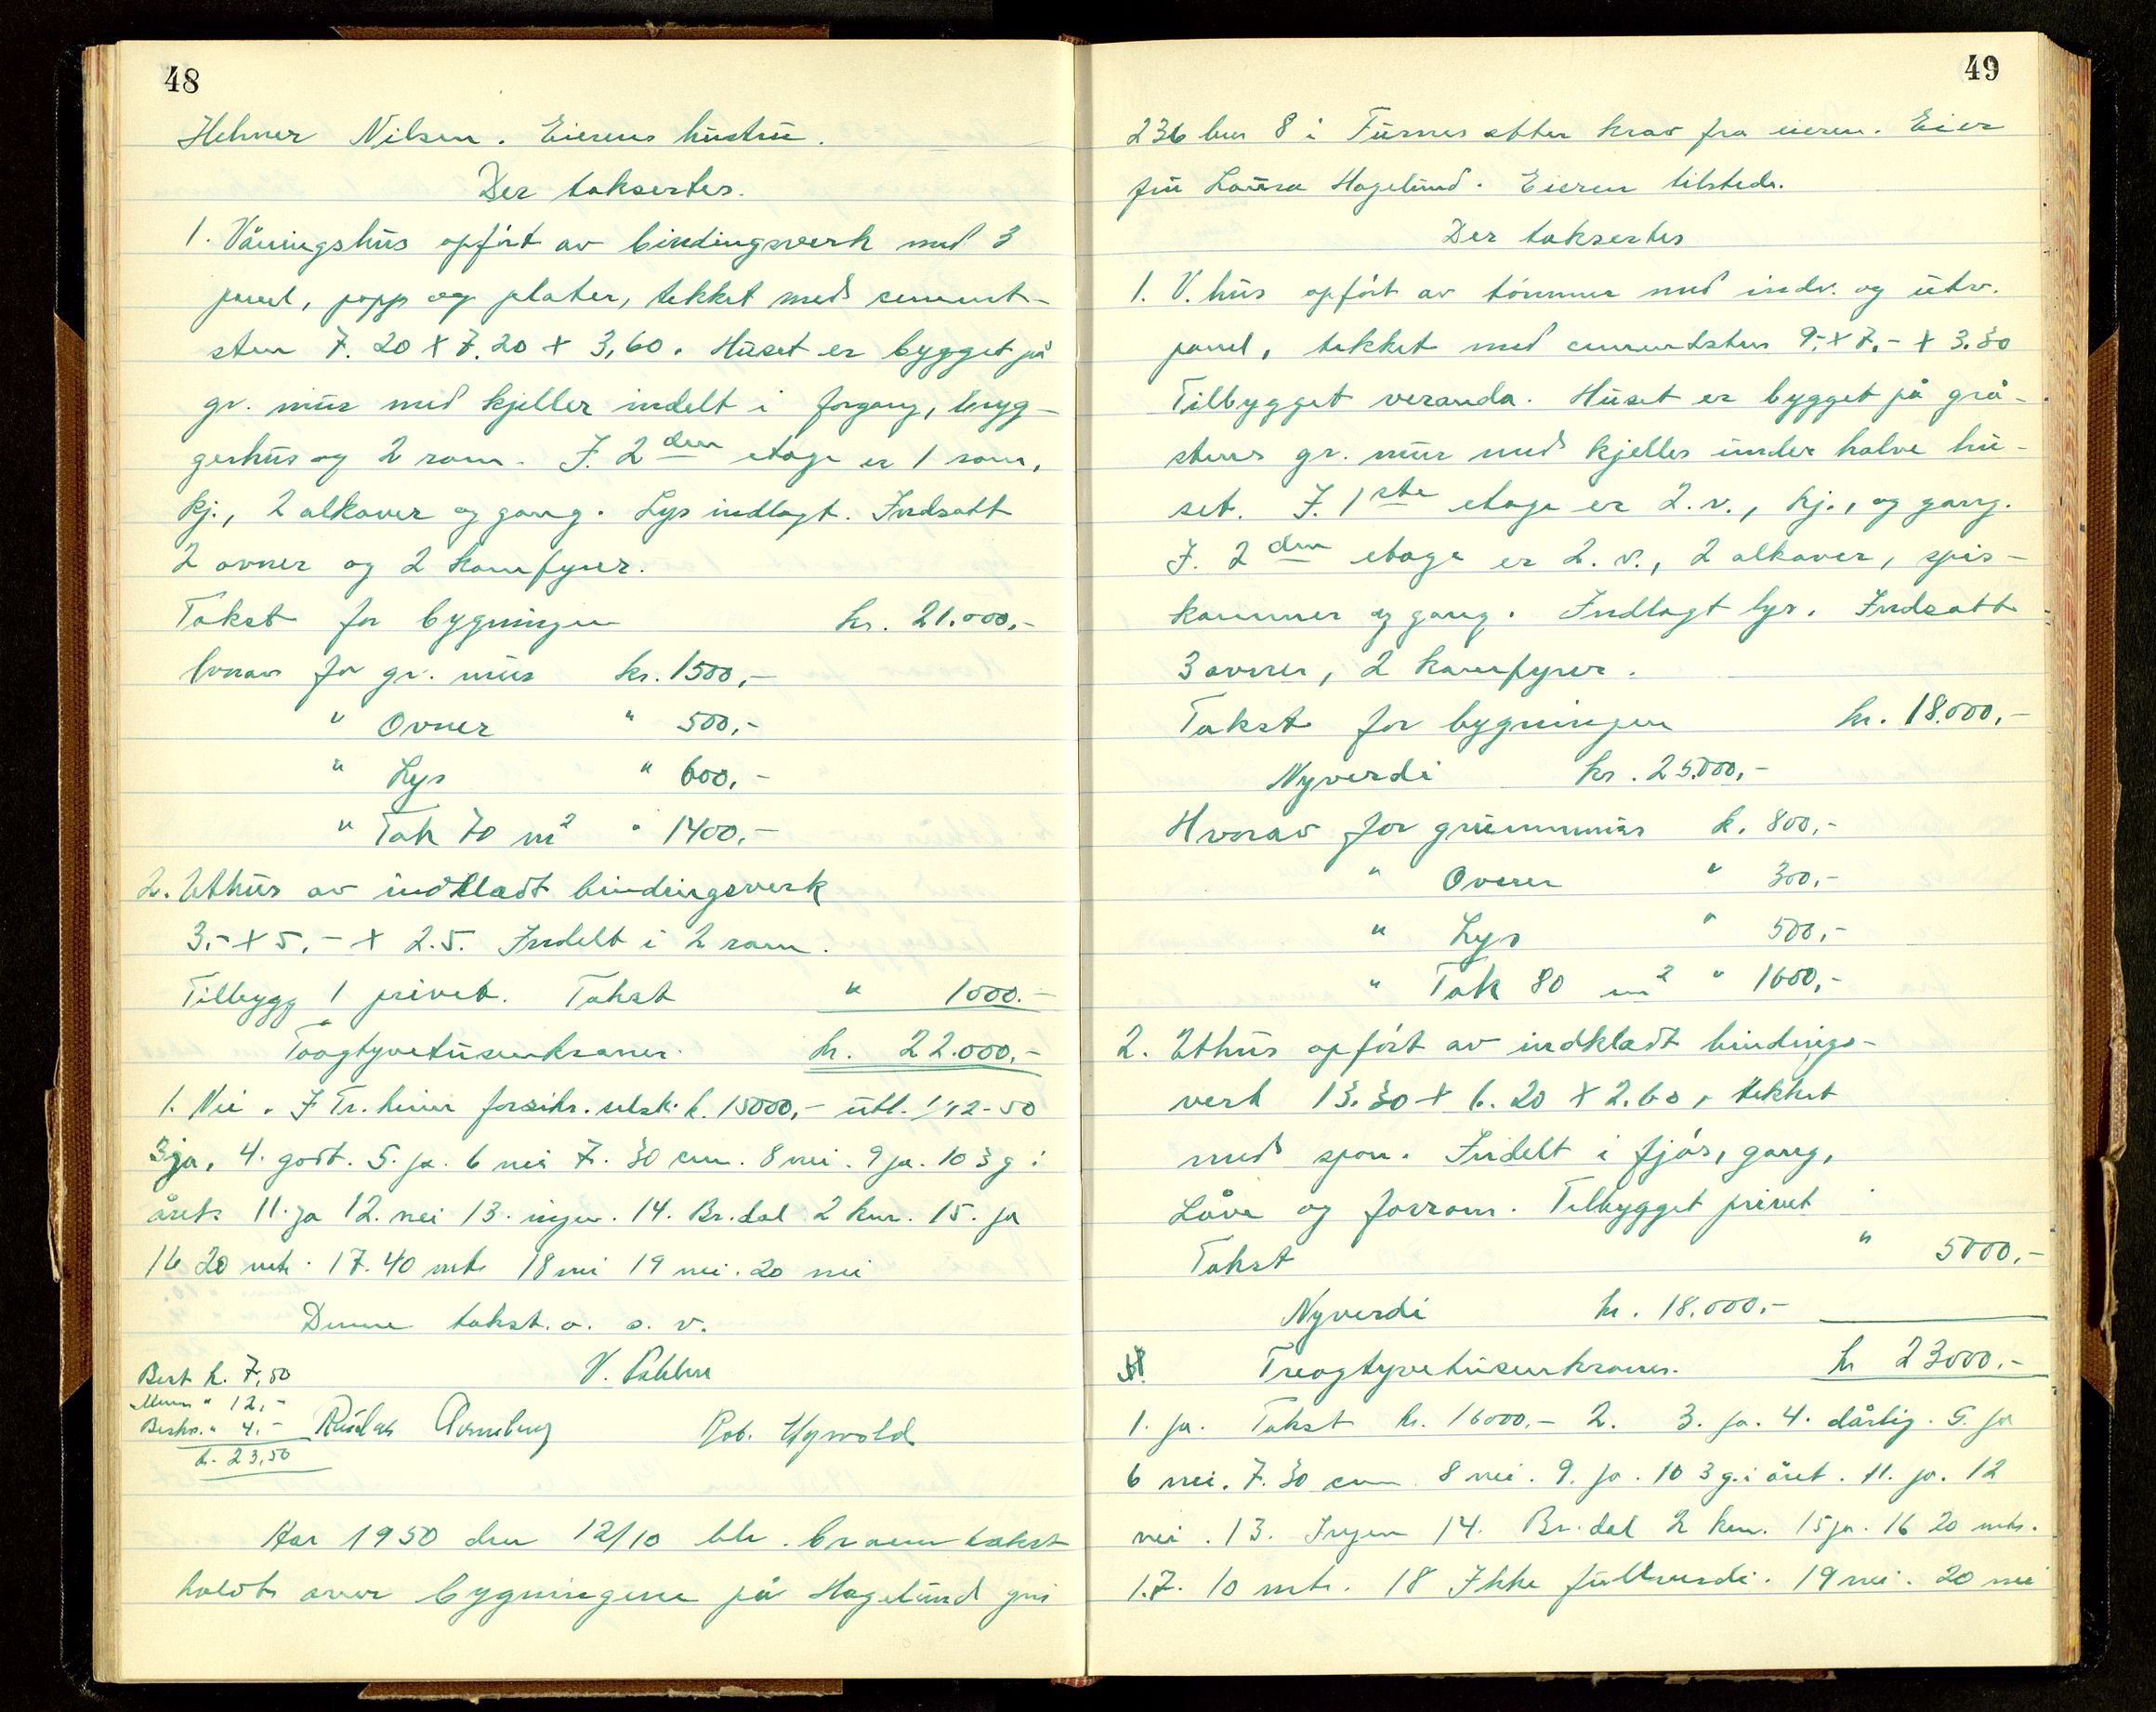 48
Helmer Nilsen. Eierens hustru.
Der taksertes.
1. Våningshus opført av bindingsverk med 3
panel, papp og plater, tekket med cement-
sten 7.20 x 7.20 x 3,60. Huset er bygget på
gr. mur med kjeller indelt i forgang, bryg-
gerhus og 2 rom. I. 2den etage er 1 rom,
kj., 2 alkover og gang. Lys indlagt. Indsatt
2 ovner og 2 komfyrer.
Takst for bygningen kr. 21.000,-
hvorav for gr. mur kr. 1500,-
" Ovner " 500,-
" Lys " 600,-
" Tak 70 m2 " 1400,-
2. Uthus av indkledt bindingsverk
3,- x 5,- x 2.5. Indelt i 2 rom.
Tilbygg 1 privet. Takst " 1000.-
Toogtyvetusenkroner. kr. 22.000,-
1. Nei. forsikr. selsk. k. 15000,- utl. 1/12-50
3 ja, 4. godt. 5. ja. 6 nei 7. 30 cm. 8 nei. 9 ja. 10 3 g i
året. 11. ja 12. nei 13. ingen. 14. Br.dal 2 km. 15. ja
16 20 mtr. 17. 40 mtr 18 nei 19 nei. 20 nei
Denne takst. o. s. v.
Best k. 7,50
" 12,-
Beskr. " 4.-
k. 23,50
Rob.
Aar 1950 den 12/10 ble branntakst
holdt over bygningene på Hagelund gni
49
236 bnr 8 i Furnes etter krav fra eieren. Eier
fru Laura Hagelund. Eieren tilstede.
Der taksertes
1. V. hus opført av tømmer med indv. og utv.
panel, tekket med cementsten 9,- x 7,- x 3.30
Tilbygget veranda. Huset er bygget på grå-
stens gr. mur med kjeller under halve hu-
set. I. 1ste etage er 2. v., kj., og gang.
I. 2den etage er 2. v., 2 alkover, spis-
kammer og gang. Indlagt lys. Indsatt
3 ovner, 2 komfyrer.
Takst for bygningen kr. 18.000,-
Nyverdi kr. 25.000,-
Hvorav for grunnmur k. 800,-
" Ovner " 300,-
" Lys " 500,-
" Tak 80 m2 " 1600,-
2. Uthus opført av indkledt bindings-
verk 13.30 x 6.20 x 2.60, tekket
med spon. Indelt i fjøs, gang,
Låve og forrom. Tilbygget privet
Takst " 5000,-
Nyverdi kr. 18.000,-
Treogtyvetusenkroner. kr 23000.-
1. ja. Takst kr. 16000.- 2. 3. ja. 4. dårlig. 5. ja
6 nei. 7. 30 cm. 8 nei. 9. ja. 10 3 g. i året. 11. ja. 12
nei. 13. Ingen 14. Br.dal 2 km. 15 ja. 16 20 mtr.
17. 10 mtr. 18 Ikke fullverdi. 19 nei. 20 nei